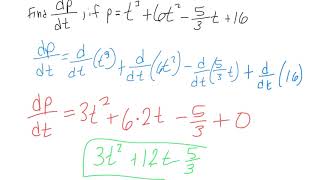 Find dp/dt, if p = t³ + 6t² − 5/3 t + 16
dp/dt = d/dt (t³) + d/dt (6t²) − d/dt (5/3 t) + d/dt (16)
dp/dt = 3t² + 6·2t − 5/3 + 0
3t² + 12t − 5/3